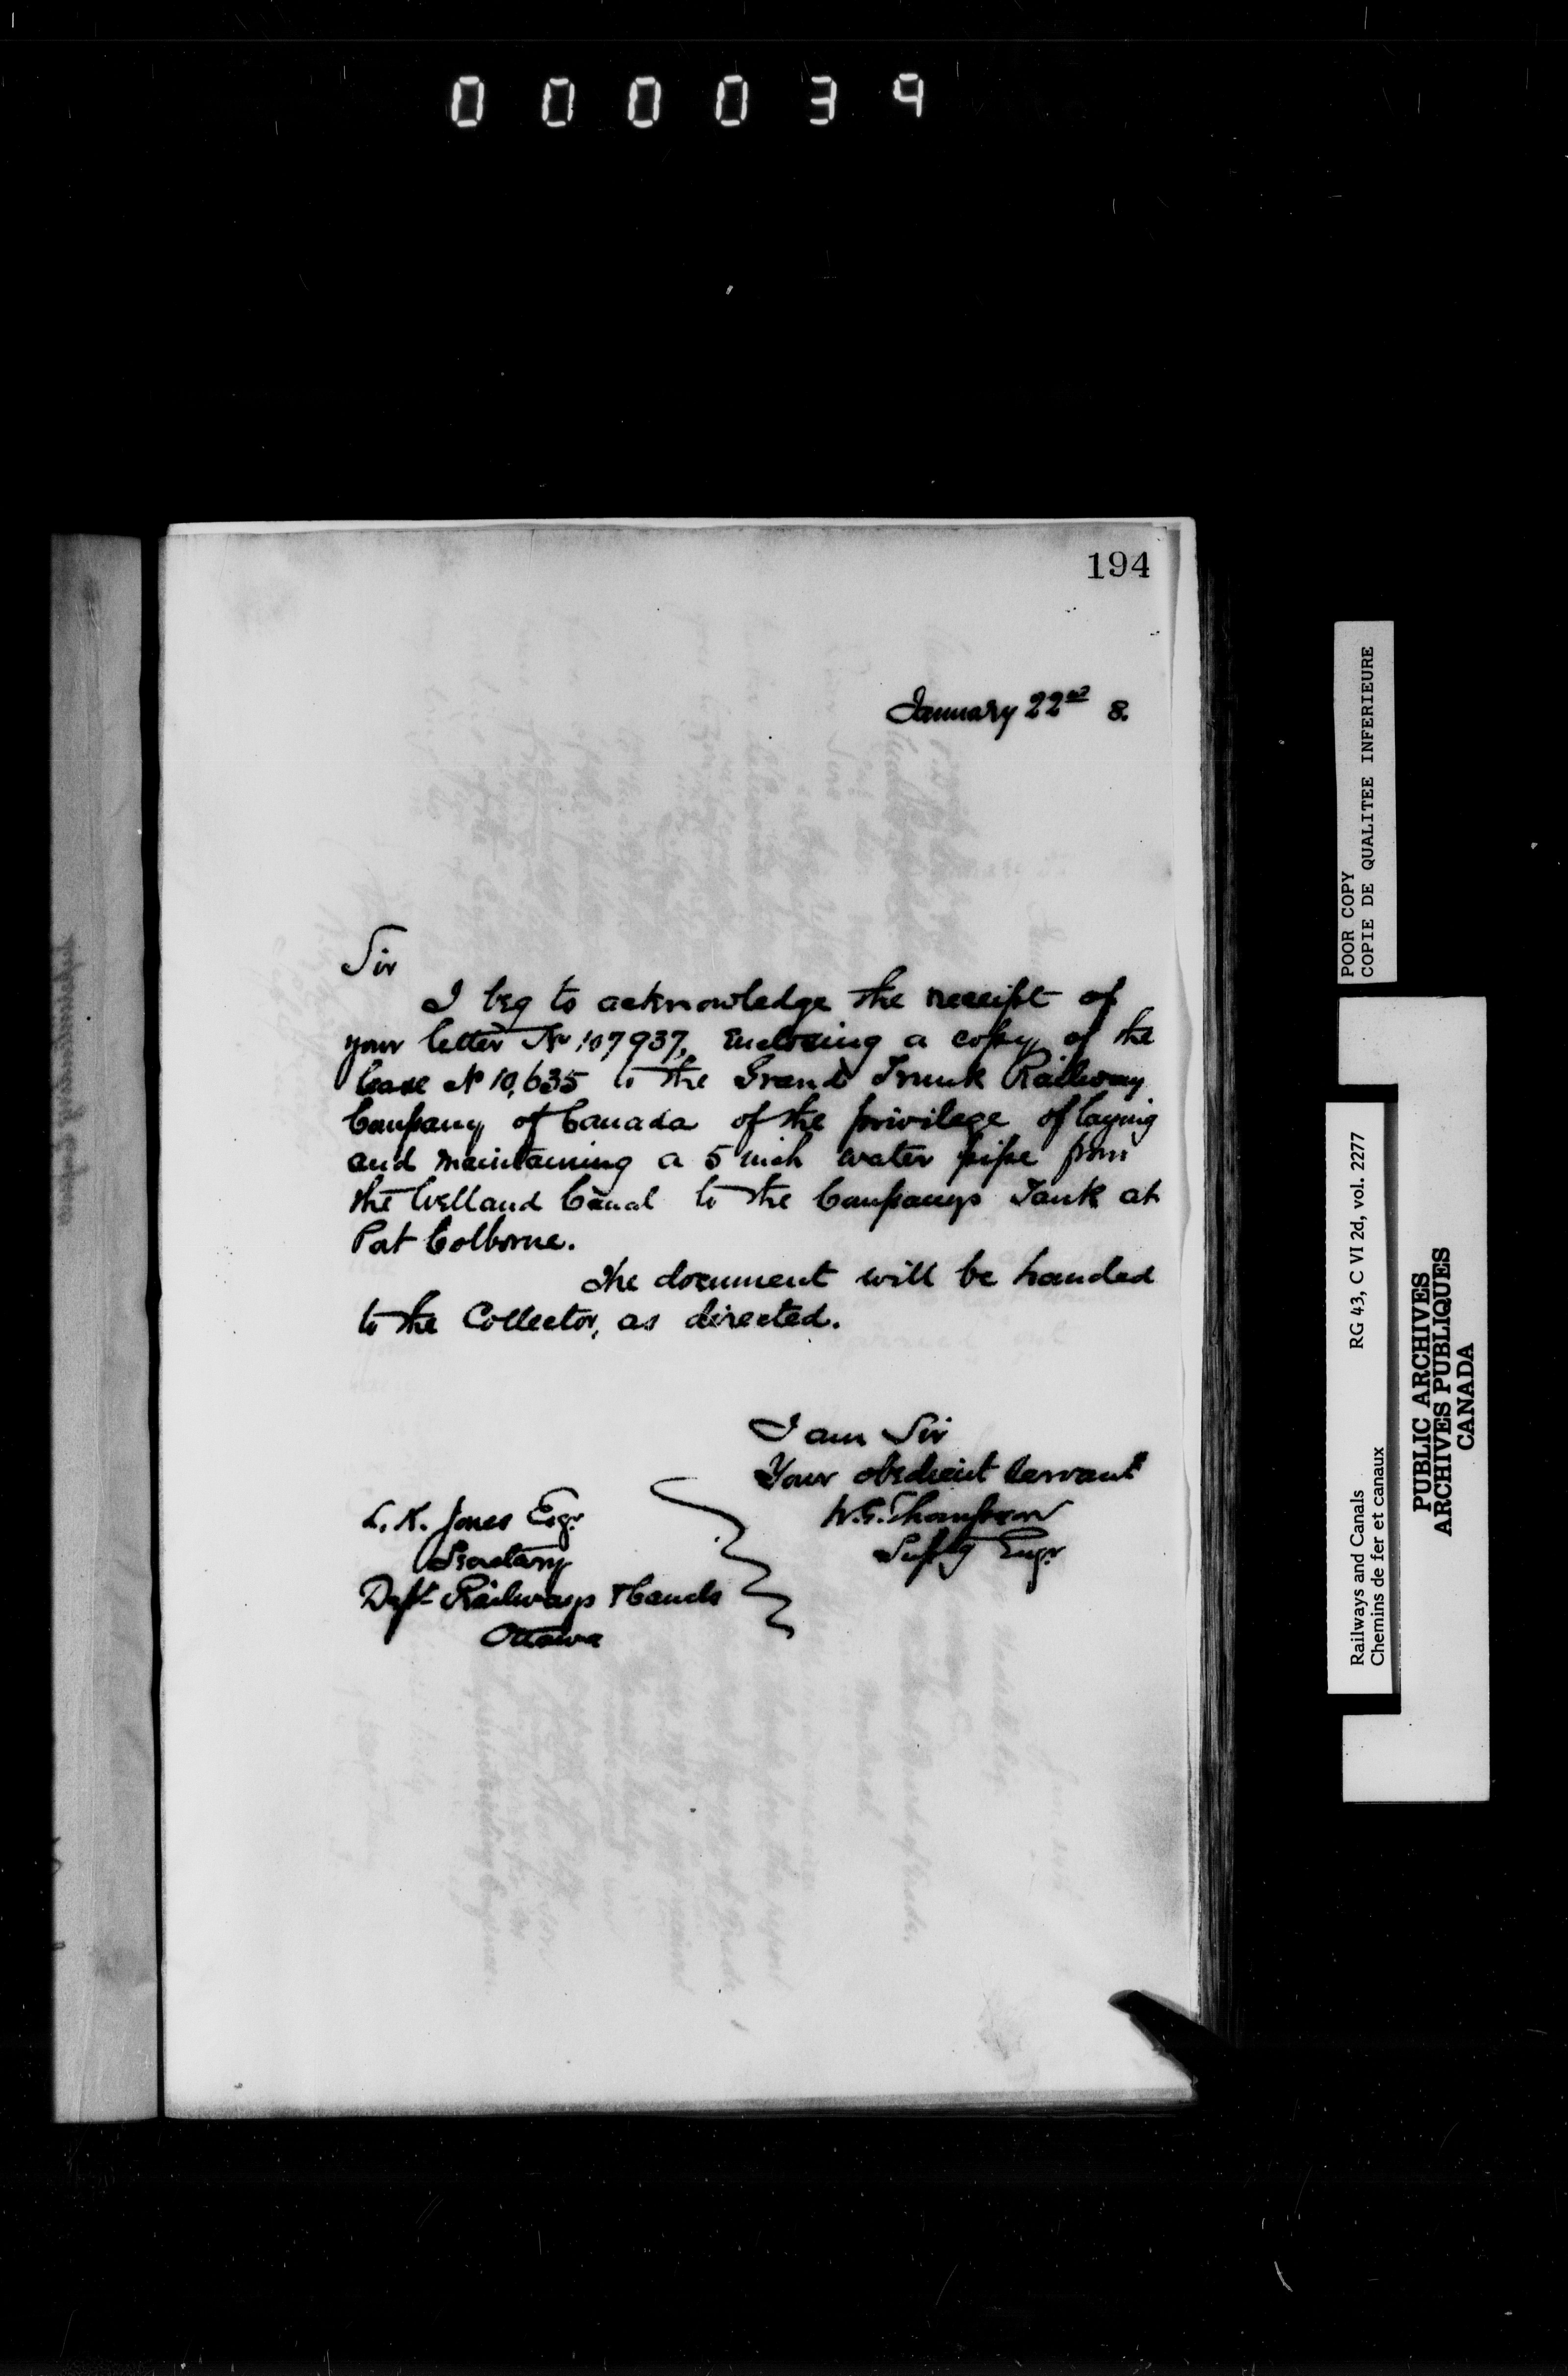 000039
194
January 22nd 8.
Sir
I beg to acknowledge the receipt of
your letter No 107937, Enclosing a copy of the
lease No 10,635 to the Grand Trunk Railway
Company of Canada of the privilege of laying
and maintaining a 5 inch water pipe from
the Welland Canal to the Companys Tank at
Port Colborne.
The document will be handed
to the Collector, as directed.
I am Sir
Your obedient Servant
W.G. Thompson
Suptg Engr
L. K. Jones Esqr
Secretary
Dept Railways & Canals
Ottawa
POOR COPY
COPIE DE QUALITEE INFERIEURE
RG 43, C VI 2d, vol. 2277
Railways and Canals
Chemins de fer et canaux
PUBLIC ARCHIVES
ARCHIVES PUBLIQUES
CANADA